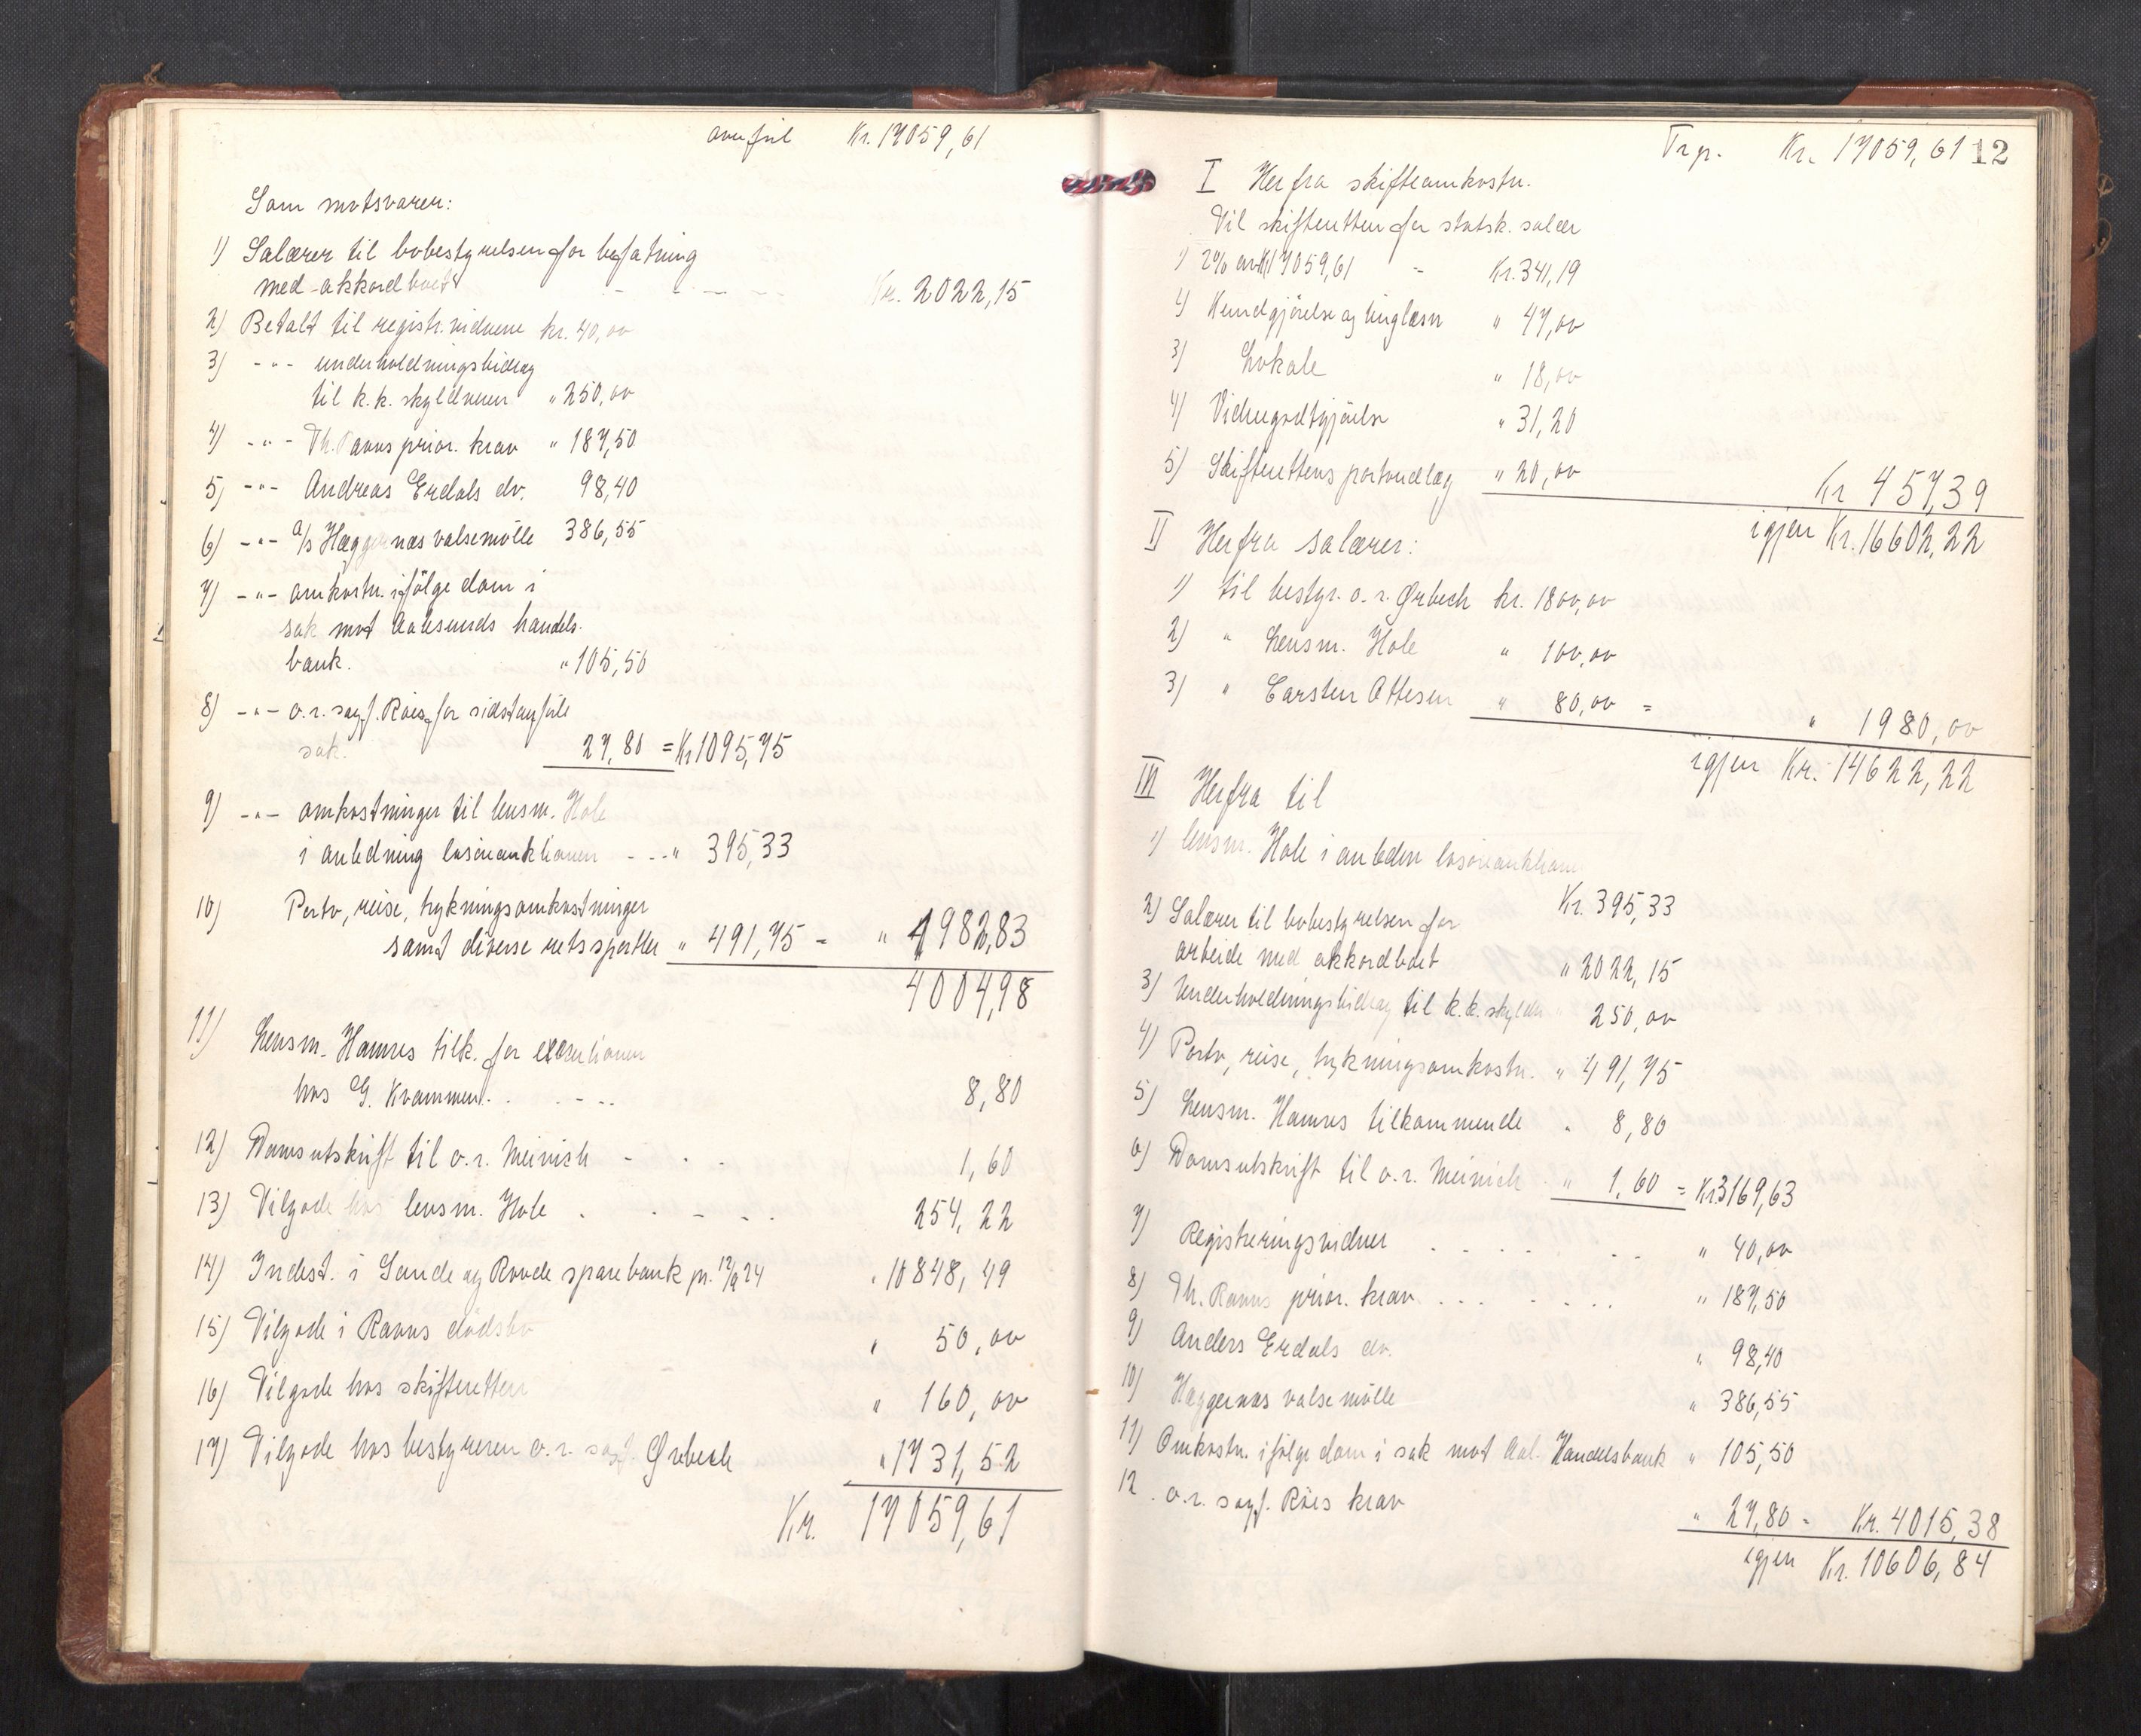 overført Kr. 17059,61
Som motsvarer:
1) Salærer til bobestyrelsen for befatning
med akkordboet Kr. 2022,15
2) Betalt til registr.vidnene kr. 40,00
3) -"- underholdningsbidrag
til k.k. skyldneren " 250,00
4) -"- Th. Ravns prior. krav " 187,50
5) -"- Andreas Erdals do. 98,40
6) -"- A/S Hæggernæs valsemølle 386,55
7) -"- omkostn. ifølge dom i
sak mot Aalesunds handels-
bank. " 105,50
8) -"- o.r. sagf. Røies for sidstanførte
sak. 27,80 = Kr 1095,75
9) -"- omkostninger til lensm. Hole
i anledning løsøreauktionen - - - " 395,33
10) Porto, reise, trykningsomkostninger
samt diverse retssportler " 491,75 = " 1982,83
4004,98
11) Lensm. Hamres tilk. for executionen
hos G. Kvammen. 8,80
12) Domsutskrift til o.r. Meinich 1,60
13) Tilgode hos lensm. Hole 254,22
14) Indest. i Sande og Rovde sparebank pr. 12/9 24 " 10848,49
15) Tilgode i Ravns dødsbo " 50,00
16) Tilgode hos skifteretten " 160,00
17) Tilgode hos bestyreren o.r. sagf. Ørbech " 1731,52
Kr. 17059,61
Trp. Kr. 17059,61 12
I Herfra skifteomkostn.
Til skifteretten for statsk. salær
1) 2% av Kr 17059,61 - Kr. 341,19
2) Kundgjørelse og tinglæsn " 47,00
3) Lokale " 18,00
4) Vidnegodtgjørelse " 31,20
5) Skifterettens portoutlæg " 20,00 Kr 457,39
igjen Kr. 16602,22
II Herfra salærer:
1) til bestyr. o.r. Ørbech kr. 1800,00
2) " Lensm. Hole " 100,00
3) " Carsten Ottesen " 80,00 = " 1980,00
igjen Kr. 14622,22
III Herfra til
1) lensm. Hole i anledn løsøreauktion
Kr. 395,33
2) Salærer til bobestyrelsen for
arbeide med akkordboet " 2022,15
3) Underholdningsbidrag til k.k. skyldn " 250,00
4) Porto, reise, trykningsomkostn. " 491,75
5) Lensm. Hamres tilkommende " 8,80
6) Domsutskrift til o.r. Meinich " 1,60 = Kr 3169,63
7) Registreringsvidner " 40,00
8) Th. Ravns prior. krav " 187,50
9) Anders Erdals do. " 98,40
10) Hæggernæs valsemølle " 386,55
11) Omkostn. ifølge dom i sak mot Aal. Handelsbank " 105,50
12. o.r. sagf. Røies krav " 27,80 = Kr. 4015,38
igjen Kr. 10606,84